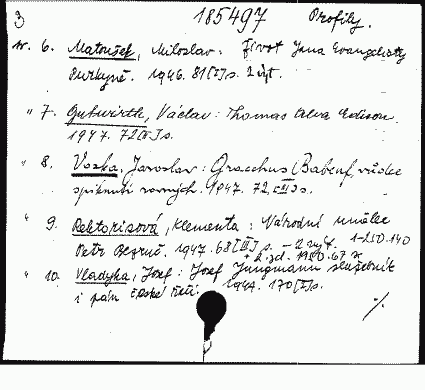 3 185497 Profily.
nr. 6. Matoušek, Miloslav: Život Jana Evangelisty
Purkyně. 1946. 81 [I] s. 2 vyt.
" 7. Gutwirth, Václav: Thomas Alva Edison.
1947. 72 [I] s.
" 8. Vozka, Jaroslav: Gracchus Babeuf, vůdce
spiknutí rovných. 1947. 72, [II] s.
" 9. Rektorisová, Klementa: Národní umělec
Petr Bezruč. 1947. 68 [III] s. – 2 vyt. 1-250.140
+ 2. zd. 1950. 67
" 10. Vladyka, Josef: Josef Jungmann služebník
i pán české řeči. 1947. 170 [I] s.
%